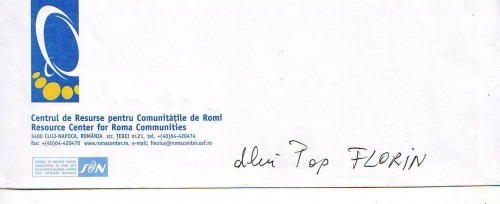 Centrul de Resurse pentru Comunităţile de Romi
Resource Center for Roma Communities
3400 CLUJ-NAPOCA, ROMÂNIA str. ŢEBEI nr.21, tel. +(40)64-420474
fax: +(40)64-420470 www.romacenter.ro, e-mail: fmoisa@romacenter.osf.ro
SON
dlui Pop FLORIN